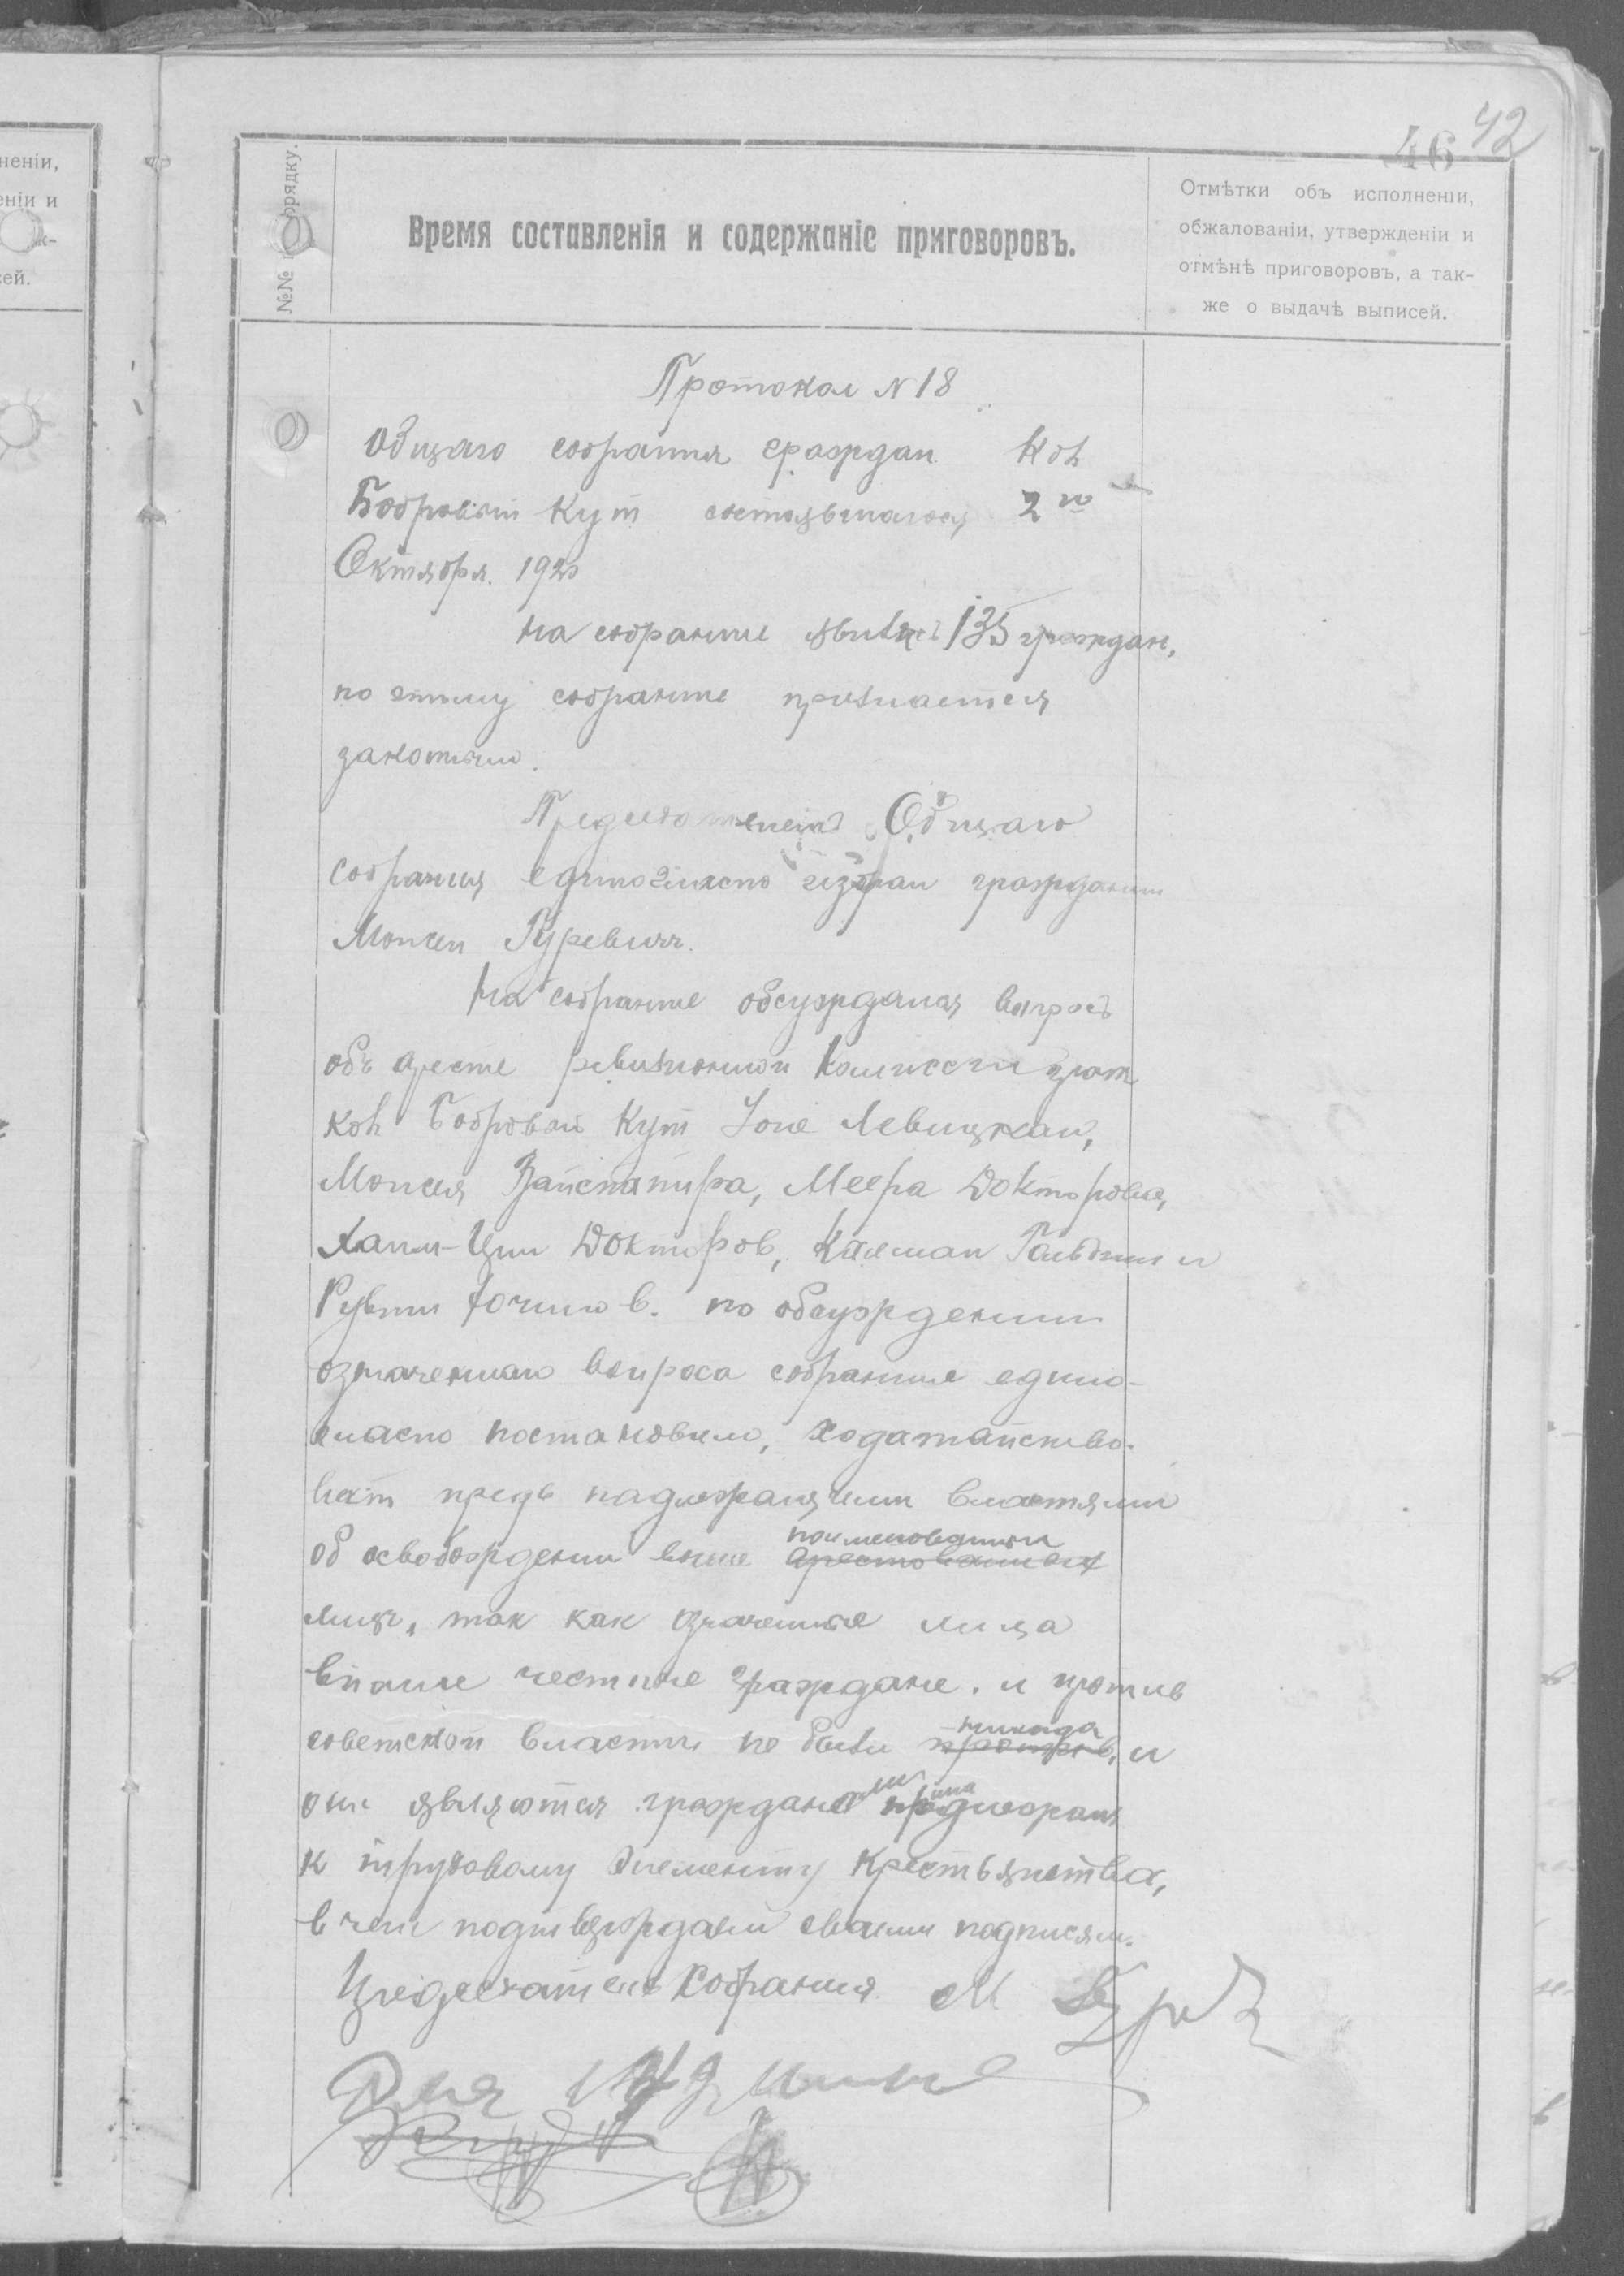 42
46
неніи,
еніи и
к-
сей.
№№ орядку.
Время составленія и содержаніе приговоровъ.
Отмѣтки объ исполненіи,
обжалованіи, утвержденіи и
отмѣнѣ приговоровъ, а так-
же о выдачѣ выписей.
Протокол N 18
Общаго собрания граждан Кол
Бобровый Кут состоявшагося 2го
Октября 1920
На собрание явились 135 граждан,
по этому собрание признается
законным.
Председателем Общаго
собрания единогласно избран гражданин
Моисей Гуревич.
На собрание обсуждался вопросъ
объ аресте ревизионной комиссии граж
кол Бобровый Кут Іоне Левицкаи,
Моисея Вайспапира, Меера Докторовиа,
Хаим-Цви Докторов, Калман Гольдин и
Рувин по обсуждении
означеннаго вопроса собрание едино-
гласно постановило, ходатайство-
вать предъ надлежащими властями
поименованных
об освобождении выше арестованных
лицъ, так как означенные лица
вполне честные граждане. и против
никогда
советской власти не были против, и
они являются гражданами надлежащ
к трудовому элементу крестьянства,
в чем подтверждаем своими подписям.
Председатель Собрания М Гур